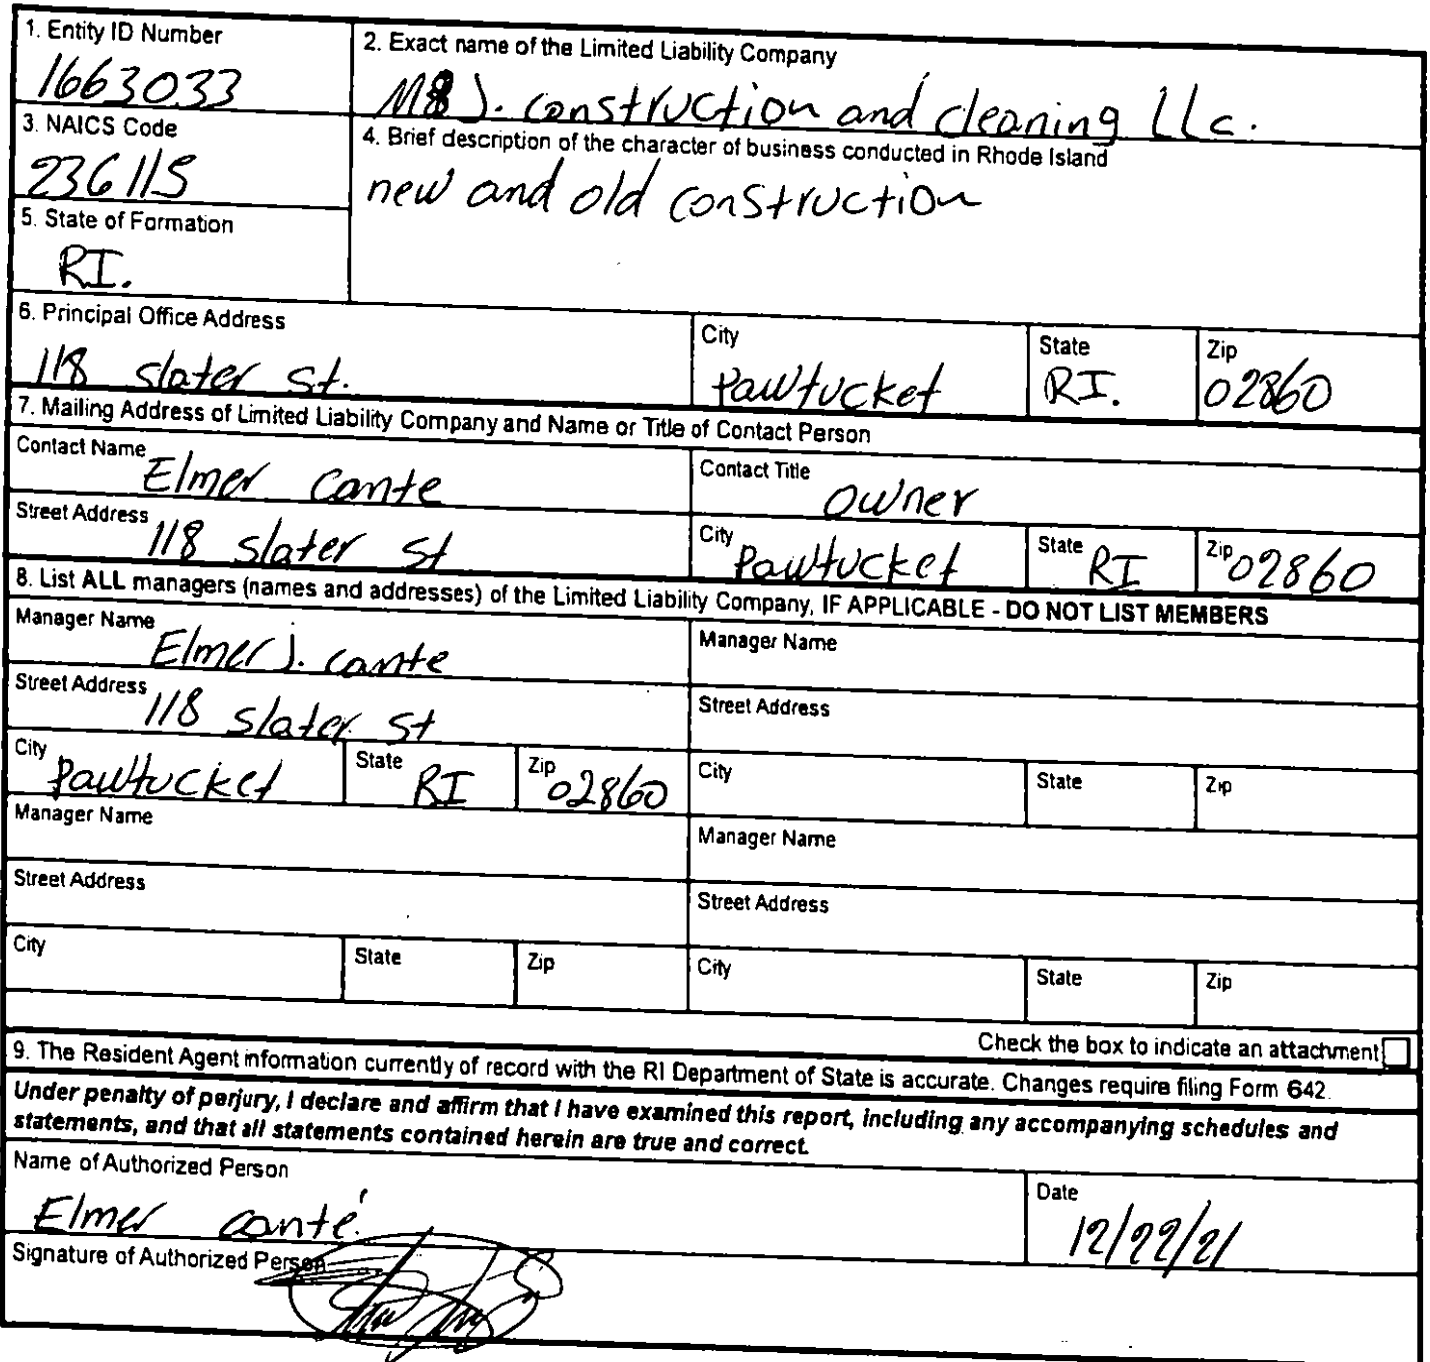 1. Entity ID Number
1663033
2. Exact name of the Limited Liability Company
M&J. construction and cleaning LLc.
3. NAICS Code
236115
4. Brief description of the character of business conducted in Rhode Island
new and old construction
5. State of Formation
RI.
6. Principal Office Address
118 slater st.
City
Pawtucket
State
RI.
Zip
02860
7. Mailing Address of Limited Liability Company and Name or Title of Contact Person
Contact Name
Elmer cante
Contact Title
owner
Street Address
118 slater st
City
Pawtucket
State
RI
Zip
02860
8. List ALL managers (names and addresses) of the Limited Liability Company, IF APPLICABLE - DO NOT LIST MEMBERS
Manager Name
Elmer j. cante
Manager Name
Street Address
118 slater st
Street Address
City
Pawtucket
State
RI
Zip
02860
City
State
Zip
Manager Name
Manager Name
Street Address
Street Address
City
State
Zip
City
State
Zip
Check the box to indicate an attachment
9. The Resident Agent information currently of record with the RI Department of State is accurate. Changes require filing Form 642.
Under penalty of perjury, I declare and affirm that I have examined this report, including any accompanying schedules and
statements, and that all statements contained herein are true and correct.
Name of Authorized Person
Elmer canté.
Date
12/22/21
Signature of Authorized Person